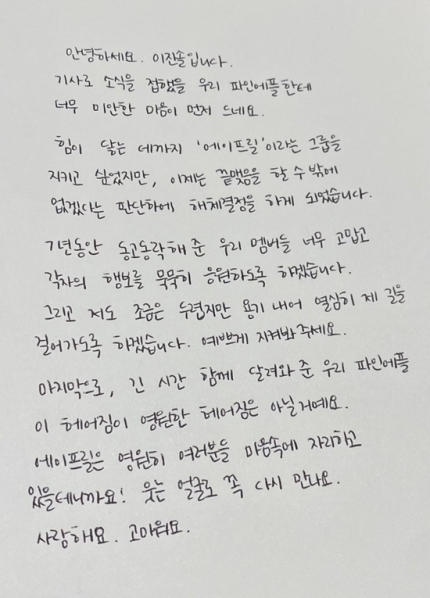 안녕하세요. 이진솔입니다.
기사로 소식을 접했을 우리 파인에플한테
너무 미안한 마음이 먼저 드네요.
힘이 닿는 데까지 '에이프릴'이라는 그룹을
지키고 싶었지만, 이제는 끝맺음을 할 수 밖에
없겠다는 판단하에 해체결정을 하게 되었습니다.
7년동안 동고동락해 준 우리 멤버들 너무 고맙고
각자의 행보를 묵묵히 응원하도록 하겠습니다.
그리고 저도 조금은 두렵지만 용기 내어 열심히 제 길을
걸어가도록 하겠습니다. 예쁘게 지켜봐 주세요.
마지막으로, 긴 시간 함께 달려와 준 우리 파인에플
이 헤어짐이 영원한 헤어짐은 아닐거예요.
에이프릴은 영원히 여러분들 마음속에 자리하고
있을테니까요! 웃는 얼굴로 꼭 다시 만나요.
사랑해요. 고마워요.